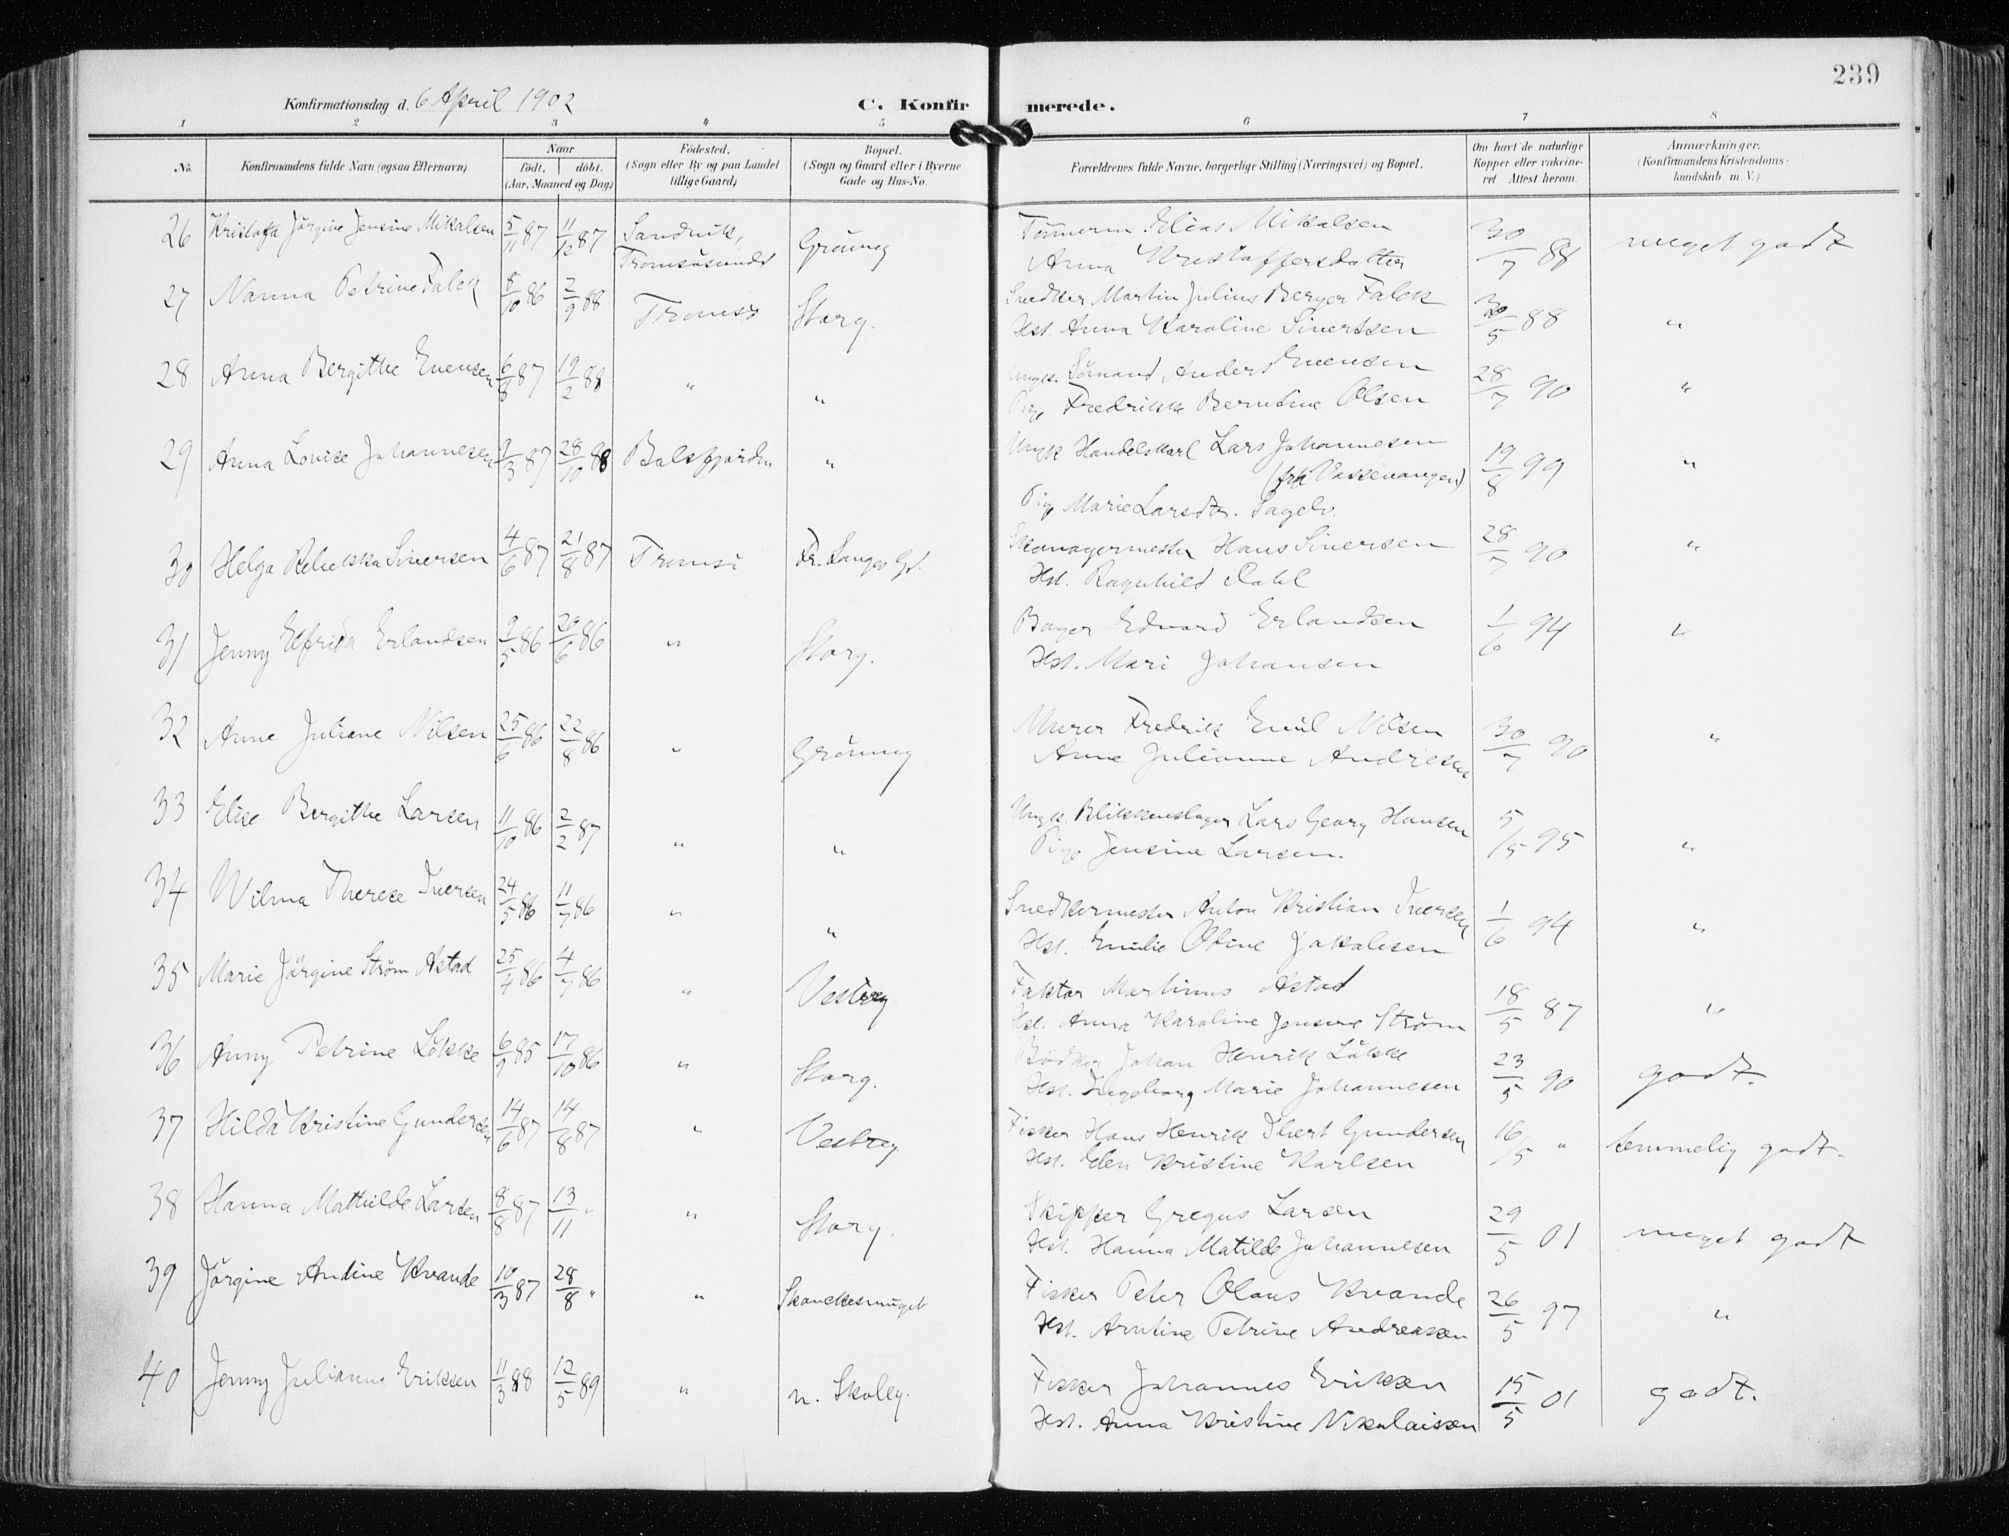 239
Konfirmationsdag d. 6 April 1902
C. Konfirmerede.
1 2 3 4 5 6 7 8
No. Konfirmandens fulde Navn (ogsaa Efternavn) Naar Født. døbt. (Aar, Maaned og Dag) Fødested. (Sogn eller By og paa Landet tillige Gaard) Bopæl. (Sogn og Gaard eller i Byerne Gade og Hus-No. Forældrenes fulde Navne, borgerlige Stilling (Næringsvei) og Bopæl. Om havt de naturlige Kopper eller vakcineret. Attest herom. Anmærkninger. (Konfirmandens Kristendomskundskab m. V.)
26 Jörgine Jensine Mikalsen 5/11 87 11/12 87 Sandvik, Tromsøsundet Grönneg Elias Mikalsen 30/7 88 meget godt
Anna Kristoffersdatter
27 Nanna Petrine Falck 8/10 86 2/9 88 Tromsö Storg. Snedker Martin Julius Berger Falck 30/5 88 "
Hst. Anna Karoline Sivertsen
28 Anna Bergithe Evensen 6/8 87 19/2 88 " " Ungk. Sömand Anders Evensen 28/7 90 "
Pige Fredrikke Berntine Olsen
29 Anna Lovise Johannesen 9/3 87 28/10 88 Balsfjorden " Ungk Handelskarl Lars Johannesen 19/8 99 "
Pige Marie Larsdtr.
30 Helga Rebekka Siversen 4/6 87 21/8 87 Tromsö Fr. Langes Gd. Skomagermester Hans Siversen 28/7 90 "
Hst. Ragnhild Dahl
31 Jenny Elfrida Erlandsen 9/5 86 20/6 86 " Storg. Bager Edvard Erlandsen 1/6 94 "
Hst. Mari Johansen
32 Anne Juliane Nilsen 25/6 86 22/8 86 " Grönneg Murer Fredrik Emil Nilsen 30/7 90 "
Anne Julianne Andresen
33 Elise Bergithe Larsen 11/10 86 2/2 87 " " Ungk. Blikkenslager Lars Georg Hansen 5/5 95 "
Pige Jensine Larsen.
34 Wilma Therese Iversen 24/5 86 11/7 86 " " Snedkermester Anton Kristian Iversen 1/6 94 "
Hst. Emilie Oline Jakobsen
35 Marie Jörgine Strøm Astad 25/4 86 4/7 86 " Vestreg. Faktor Martinus Astad 18/5 87 "
Hst. Anna Karoline Jensine Strøm
36 Anny Petrine Lökke 6/9 85 17/10 86 " Storg. Bödker Johan Henrik Lökke 23/5 90 godt.
Hst. Ingeborg Marie Johannesen
37 Hilda Kristine Gundersen 14/6 87 14/8 87 " Vestreg. Fisker Hans Henrik Gundersen 16/5 " temmelig godt.
Hst. Elen Kristine Karlsen
38 Hanna Mathilde Larsen 8/8 87 13/11 " " Storg. Skipper Gregus Larsen 29/5 01 meget godt
Hst. Hanna Matilde Johannesen
39 Jörgine Andine Kvande 10/3 87 28/8 " " Skanckesmuget Fisker Peter Olaus Kvande 26/5 97 "
Hst. Arntine Petrine Andreassen
40 Jenny Julianne Eriksen 11/3 88 12/5 89 " n. Skoleg. Fisker Johannes Eriksen 15/5 01 godt.
Hst. Anna Kristine Nikolaissen